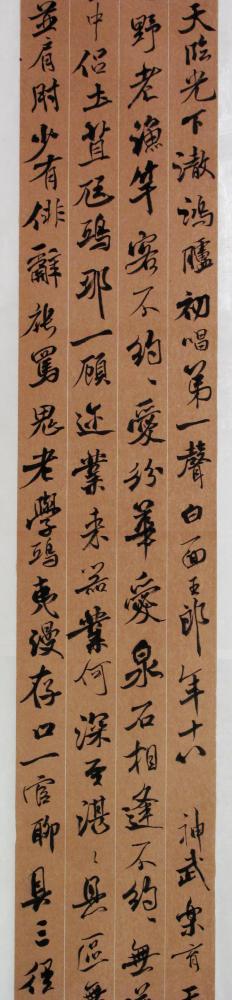 天臨光下澈鴻臚初唱第一聲白面王郎年十八 神武樂育天
野老漁竿客不約、愛紛華愛泉石相逢不約、無
中侶土苴冠鴟那一顧近業来器業何深至湛、具區無
並肩時少有俳辭能罵鬼老學鴟夷漫存口一官聊具三徑